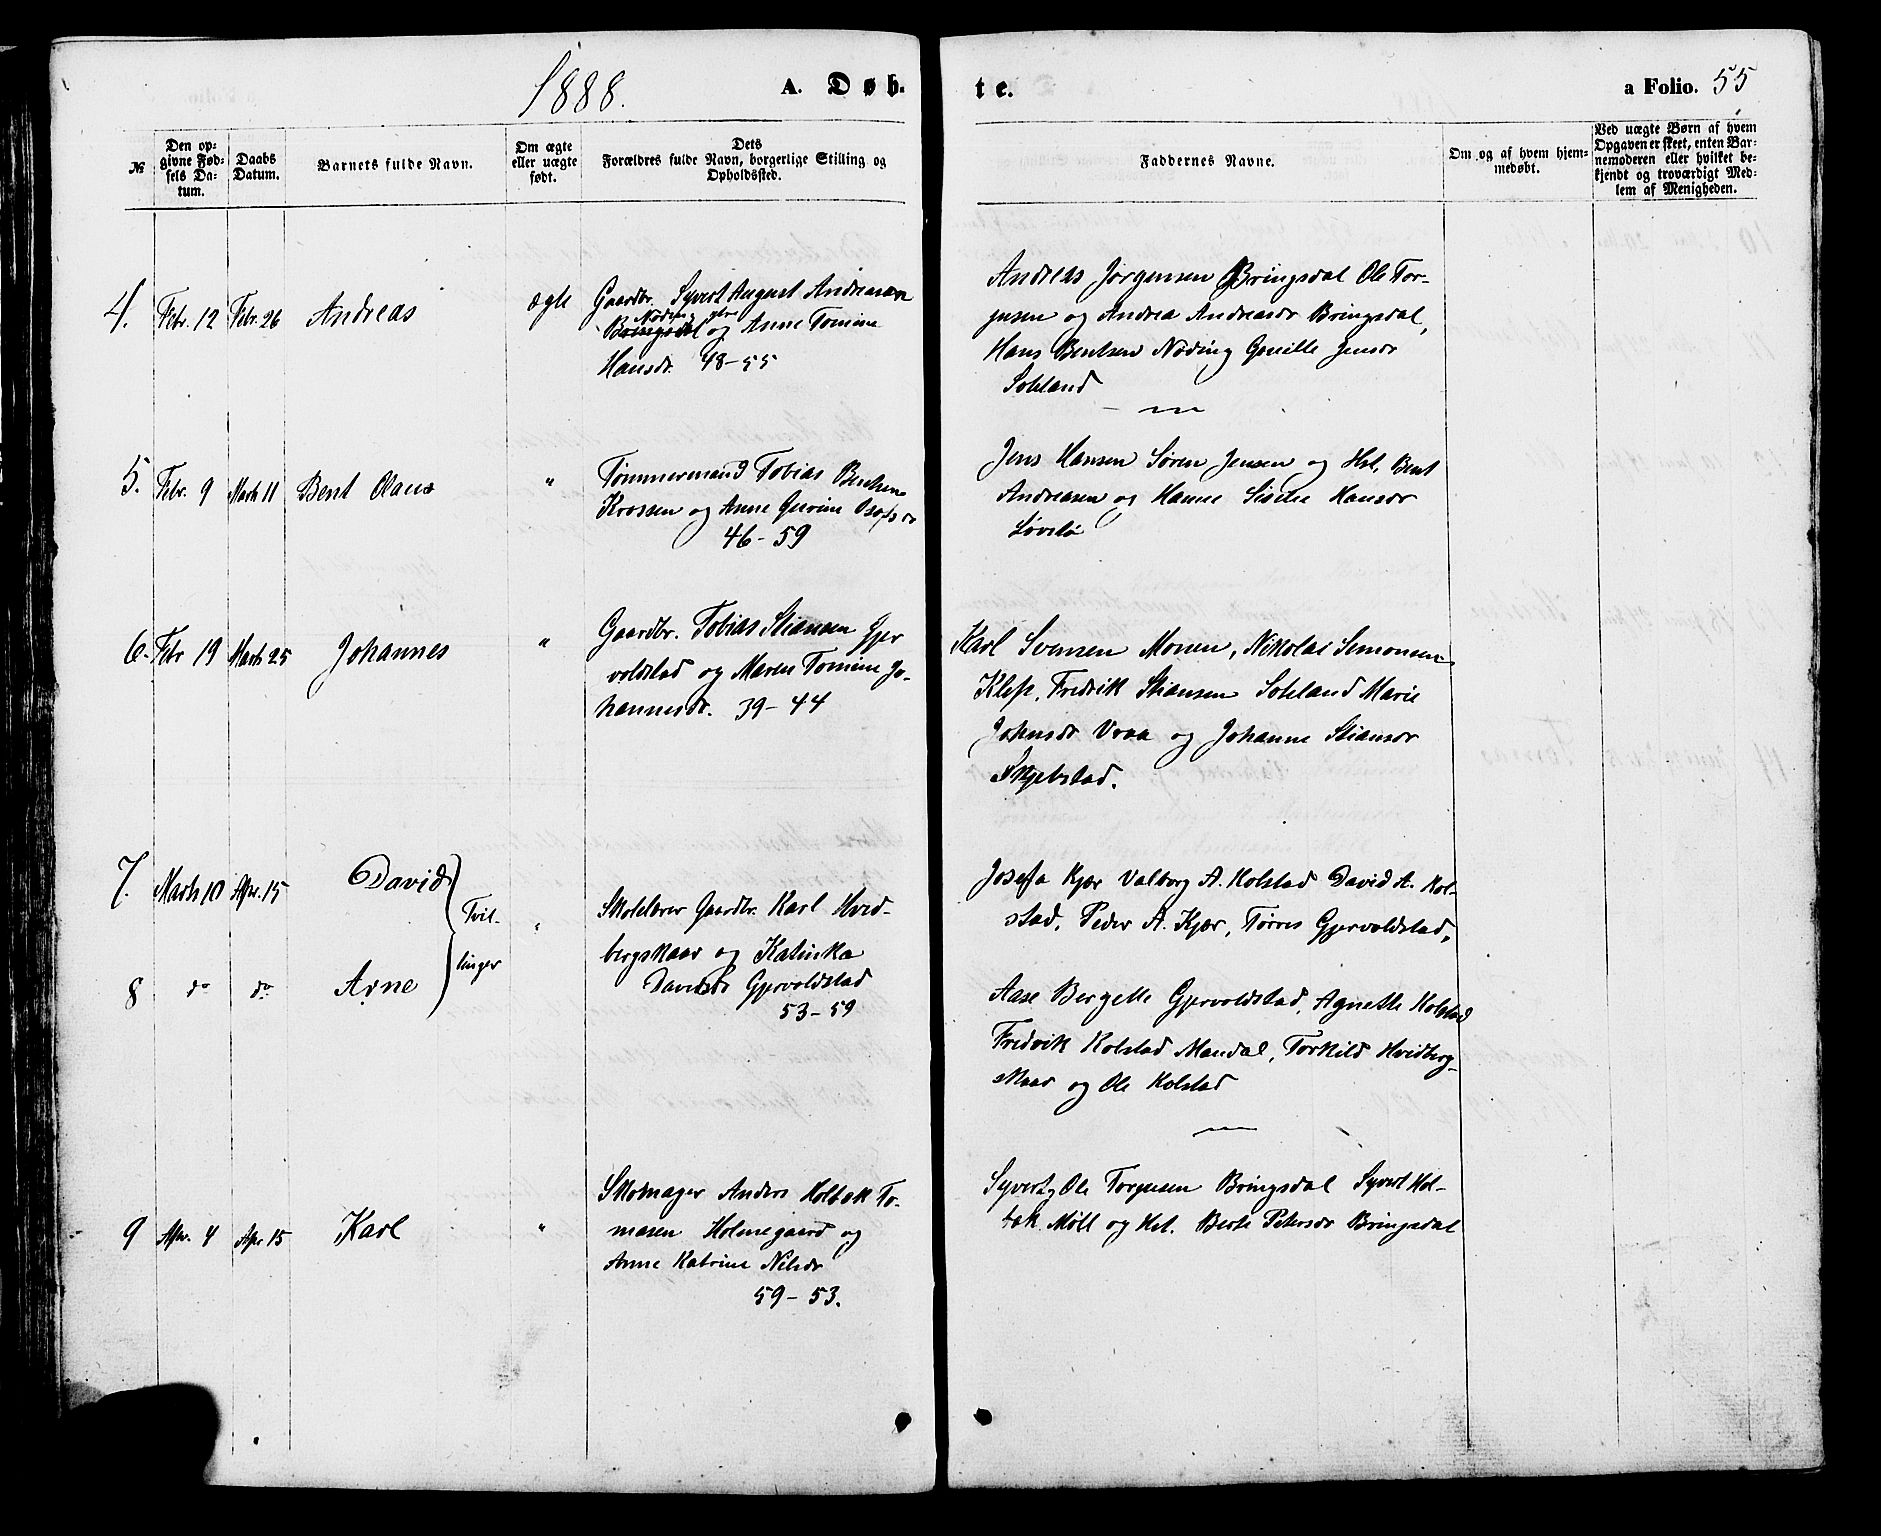 1888.
A. Døb-
te.
a Folio. 55
№
Den op-
givne Fød-
sels Da-
tum.
Daabs
Datum.
Barnets fulde Navn.
Om ægte
eller uægte
født.
Dets
Forældres fulde Navn, borgerlige Stilling og
Opholdssted.
Faddernes Navne.
Om og af hvem hjem-
medøbt.
Ved uægte Børn af hvem
Opgaven er skeet, enten Bar-
nemoderen eller hvilket be-
kjendt og troværdigt Med-
lem af Menigheden.
4. Febr. 12 Febr. 26 Andreas ægte
Gaardbr. Syvert August Andreasen
Nøding
Bringsdal og Anne Tomine
Hansdr. 48-55
Andreas Jørgensen Bringsdal Ole Tor-
jusen og Andrea Andreasdr Bringsdal,
Hans Bentsen Nøding Gunille Jensdr
Sobland
5. Febr. 9 Marts 11 Bent Olaus "
Tømmermand Tobias Bentsen
Krossen og Anne Gurine Osofsdr
46-59
Jens Hansen Søren Jensen og Hst. Bent
Andreasen og Hanne Sissilie Hansdr
Løvslø
6. Febr 19 Marts 25 Johannes "
Gaardbr. Tobias Stiansen Gjer
voldstad og Maren Tomine Jo-
hannesdr. 39-44
Karl Svensen Monen, Nikolai Simonsen
Klep, Fredrik Stiansen Sobland Marie
Johnsdr Vraa og Johanne Stiansdr
Skjebstad.
7. Marts 10 Apr. 15 David
Tvil-
linger "
8 do do Arne
Skolelærer Gaardbr. Karl Hvid-
bergskaar og Katinka
Davidsdr Gjervoldstad
53-59
Josefa Kjær Valborg A. Kolstad David A. Kol-
stad, Peder A. Kjær, Tørres Gjervoldstad,
Aase Bergette Gjervoldstad, Agnette Kolstad
Fredrik Kolstad Mandal, Torkild Hvidberg-
skaar og Ole Kolstad
9 Apr. 4 Apr 15 Karl "
Skomager Anders Holbæk To-
masen Holmegaard og
Anne Katrine Nilsdr
59-53.
Syvert, Ole Torjusen Bringsdal Syvert Hol-
bæk Møll og Hst. Berte Petersdr Bringsdal